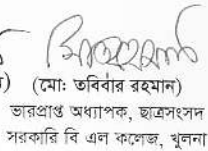 (মো: তবিবার রহমান)
ভারপ্রাপ্ত অধ্যাপক, ছাত্রসংসদ
সরকারি বি এল কলেজ, খুলনা